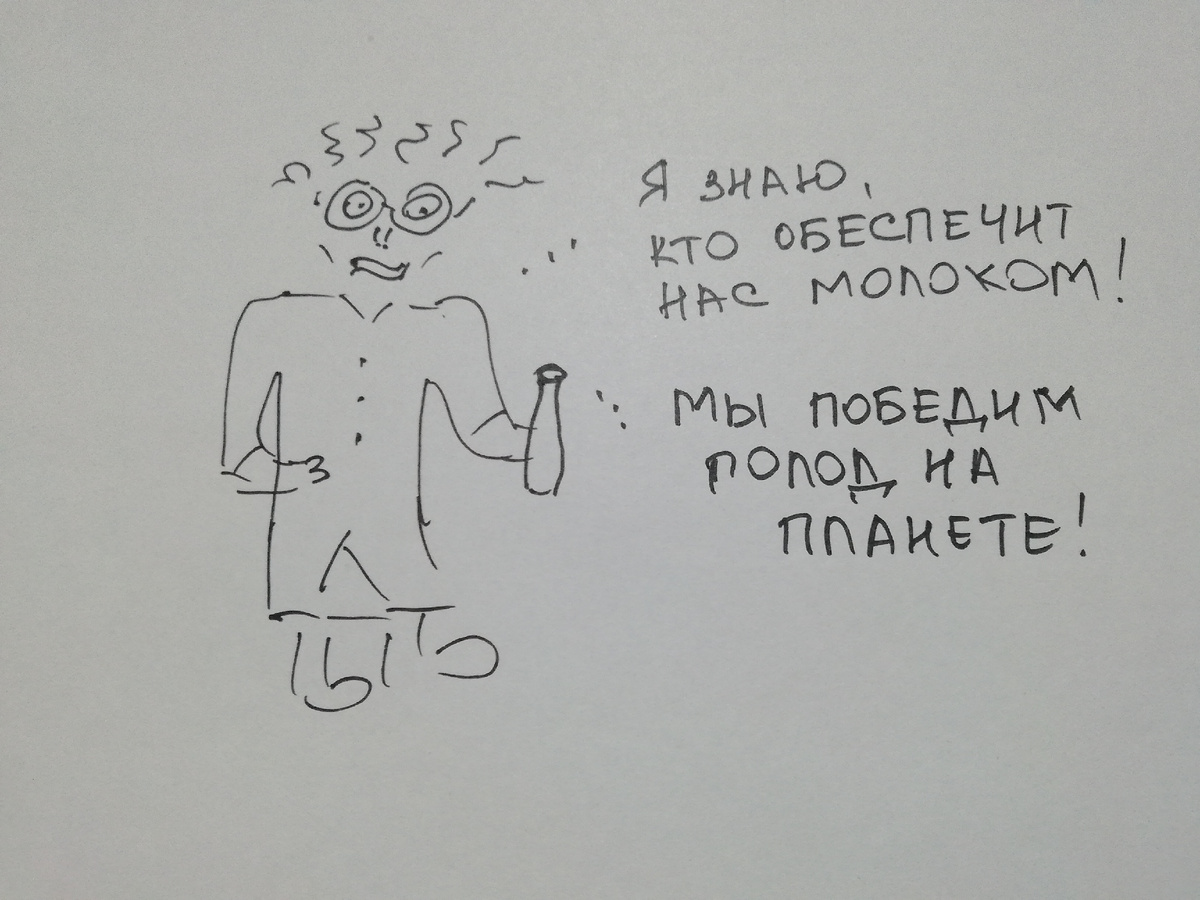 Я ЗНАЮ,
КТО ОБЕСПЕЧИТ
НАС МОЛОКОМ!
МЫ ПОБЕДИМ
ГОЛОД НА
ПЛАНЕТЕ!